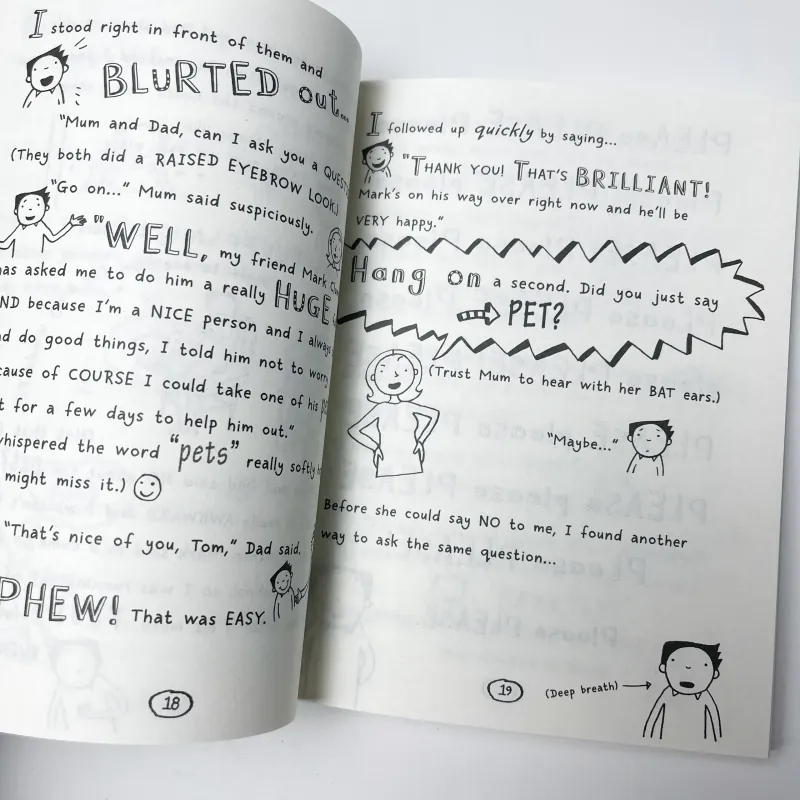 I stood right in front of them and
BLURTED out...
"Mum and Dad, can I ask you a
(They both did a RAISED EYEBROW LOOK.)
"Go on..." Mum said suspiciously.
"WELL, my friend Mark
has asked me to do him a really HUGE
because I'm a NICE person and I always
do good things, I told him not to worry
of COURSE I could take one of his
for a few days to help him out."
whispered the word "pets" really softly
might miss it.)
"That's nice of you, Tom," Dad said.
PHEW! That was EASY.
18
I followed up quickly by saying...
"THANK YOU! THAT'S BRILLIANT!
Mark's on his way over right now and he'll be
VERY happy."
Hang on a second. Did you just say
PET?
(Trust Mum to hear with her BAT ears.)
"Maybe..."
Before she could say NO to me, I found another
way to ask the same question...
(Deep breath)
19